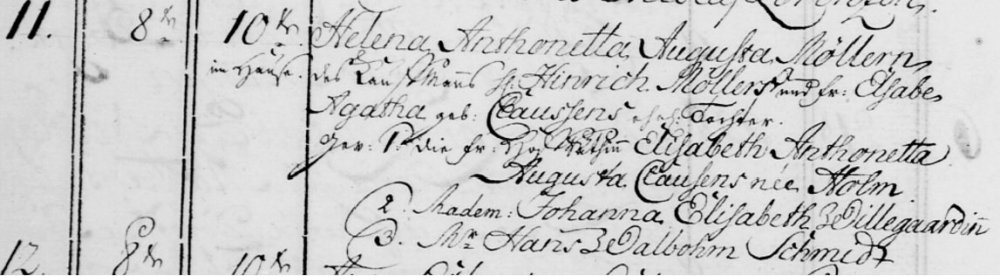 11. 8ten 10ten Helena Anthonetta Augusta Möllern,
im Hause. des Kauf Manns H: Hinrich Möllers und fr: Elsabe
Agatha geb: Claussens ehel: Tochter.
Gev: 1. die fr: Elisabeth Anthonetta
Augusta Clausens née Holm
2. Madem: Johanna Elisabeth Willegaardin
3. Mr Hans Walbohm Schmidt
12. 8ten 10ten